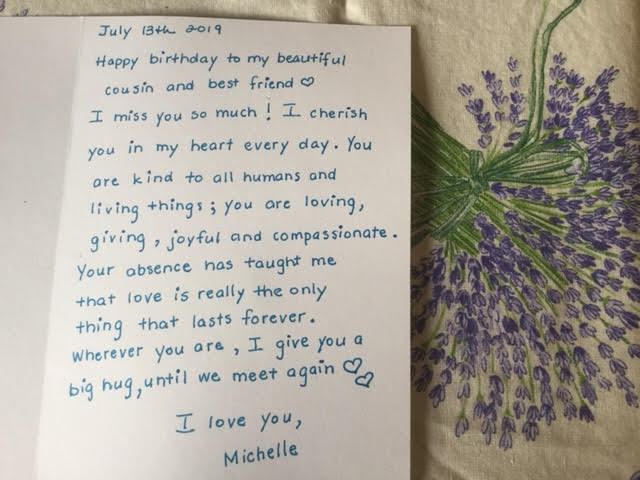 July 13th 2019
Happy birthday to my beautiful
cousin and best friend ♡
I miss you so much! I cherish
you in my heart every day. You
are kind to all humans and
living things; you are loving,
giving, joyful and compassionate.
Your absence has taught me
that love is really the only
thing that lasts forever.
Wherever you are, I give you a
big hug, until we meet again ♡♡
I love you,
Michelle